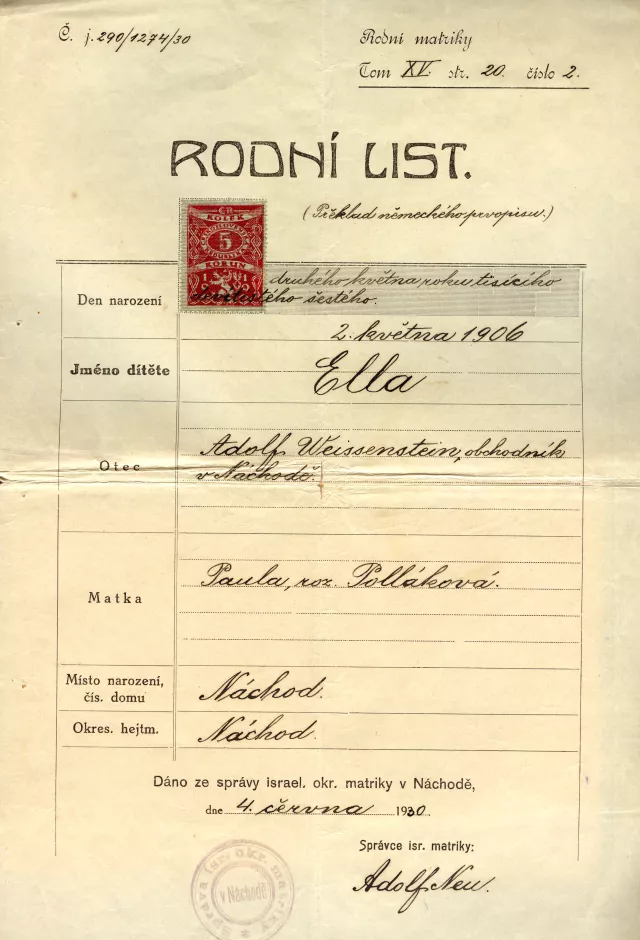 Č. j. 290/1274/30
Rodní matriky
Tom XV. str. 20. číslo 2.
RODNÍ LIST.
(Překlad německého prvopisu.)
ČR
KOLEK
5
KORUN
Den narození
druhého května roku tisícího
devítistého šestého.
2. května 1906
Jméno dítěte
Ella
Otec
Adolf Weissenstein, obchodník
v Náchodě.
Matka
Paula, roz. Polláková.
Místo narození,
čís. domu
Náchod.
Okres. hejtm.
Náchod.
Dáno ze správy israel. okr. matriky v Náchodě,
dne 4. června 1930.
Správce isr. matriky:
Adolf Neu.
Správa isr. okr. matriky
v Náchodě